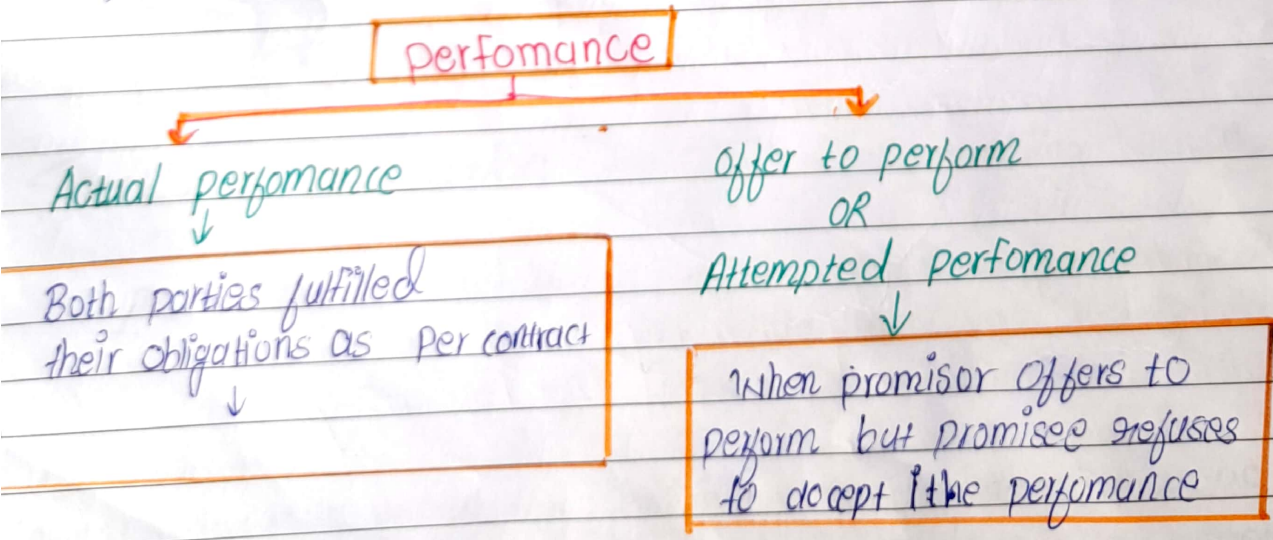 perfomance
Actual perfomance
Both parties fulfilled
their obligations as per contract
offer to perform
OR
Attempted perfomance
When promisor offers to
perform but promisee refuses
to accept the perfomance